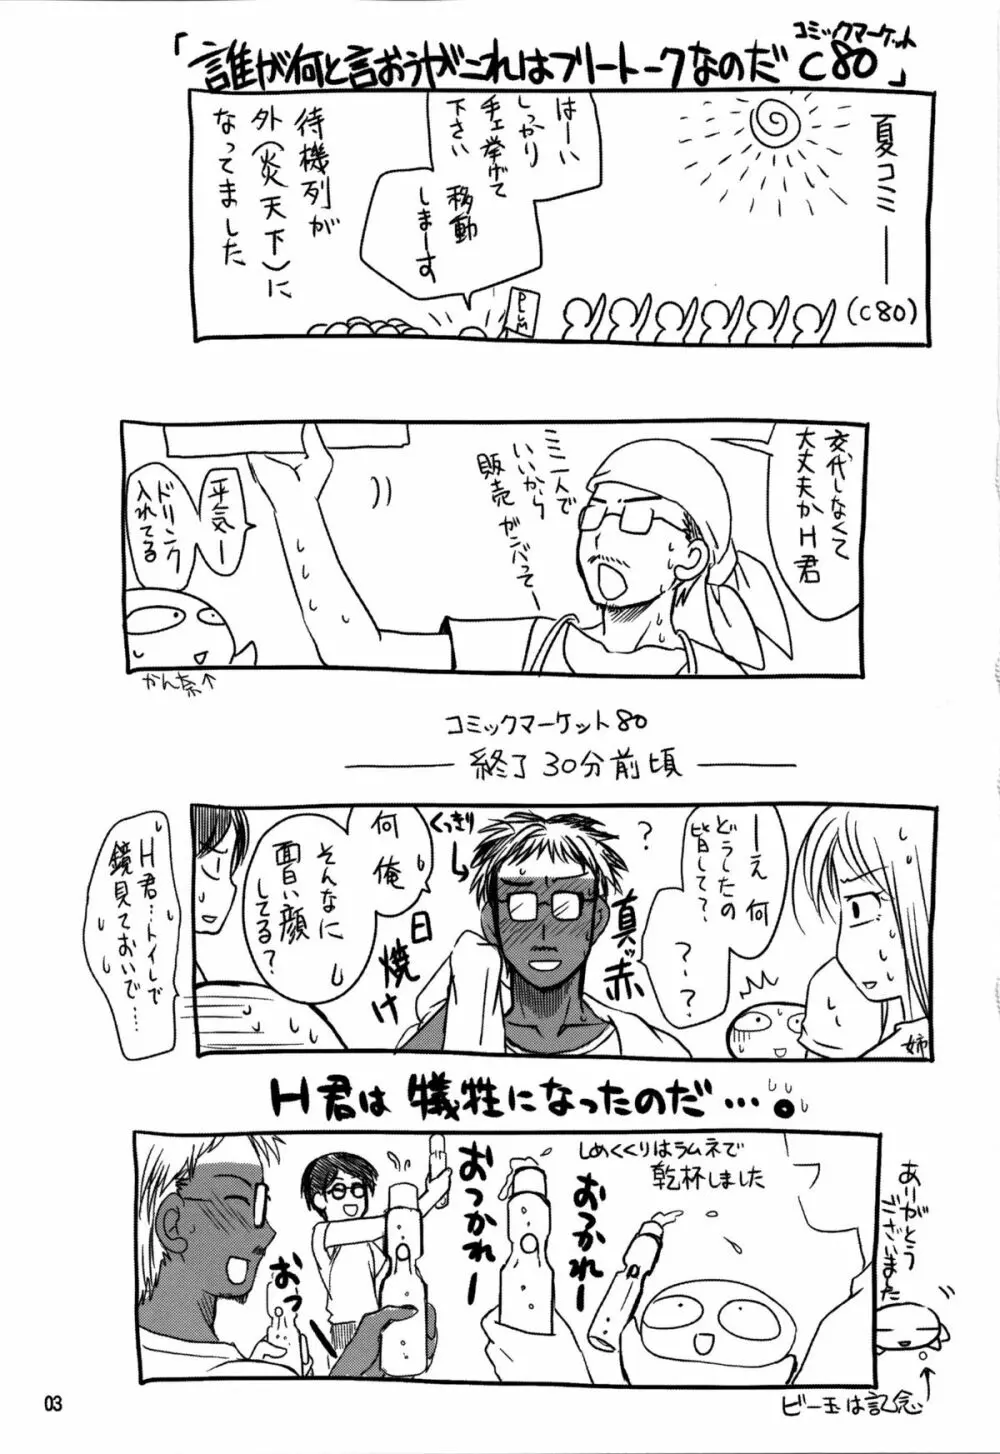 「誰が何と言おうがこれはフリートークなのだ C80」
コミックマーケット
夏コミ――
(C80)
はーい
しっかり
手ェ挙げて
下さい
移動
しまーす
待機列が
外(炎天下)に
なってました
交代しなくて
大丈夫かH君
ミミ一人で
いいから
販売ガンバってー
平気ー
ドリンク
入れてる
かん奈↑
コミックマーケット80
終了30分前頃
―え 何
どうしたの
皆して?
?
?
?
真ッ赤
くっきり
日焼け
何 俺
そんなに
面白い顔
してる?
H君…トイレで
鏡見ておいで…
姉
H君は犠牲になったのだ…。
しめくくりはラムネで
乾杯しました
おつかれー
おつかれー
おっ
ありがとう
ございました
ビー玉は記念
03